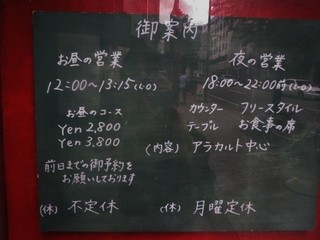 御案内
お昼の営業
12:00〜13:15(L.O)
お昼のコース
Yen 2,800
Yen 3,800
前日までの御予約を
お願いしております
(休) 不定休
夜の営業
18:00〜22:00時(L.O)
カウンター フリースタイル
テーブル お食事の席
(内容) アラカルト中心
(休) 月曜定休